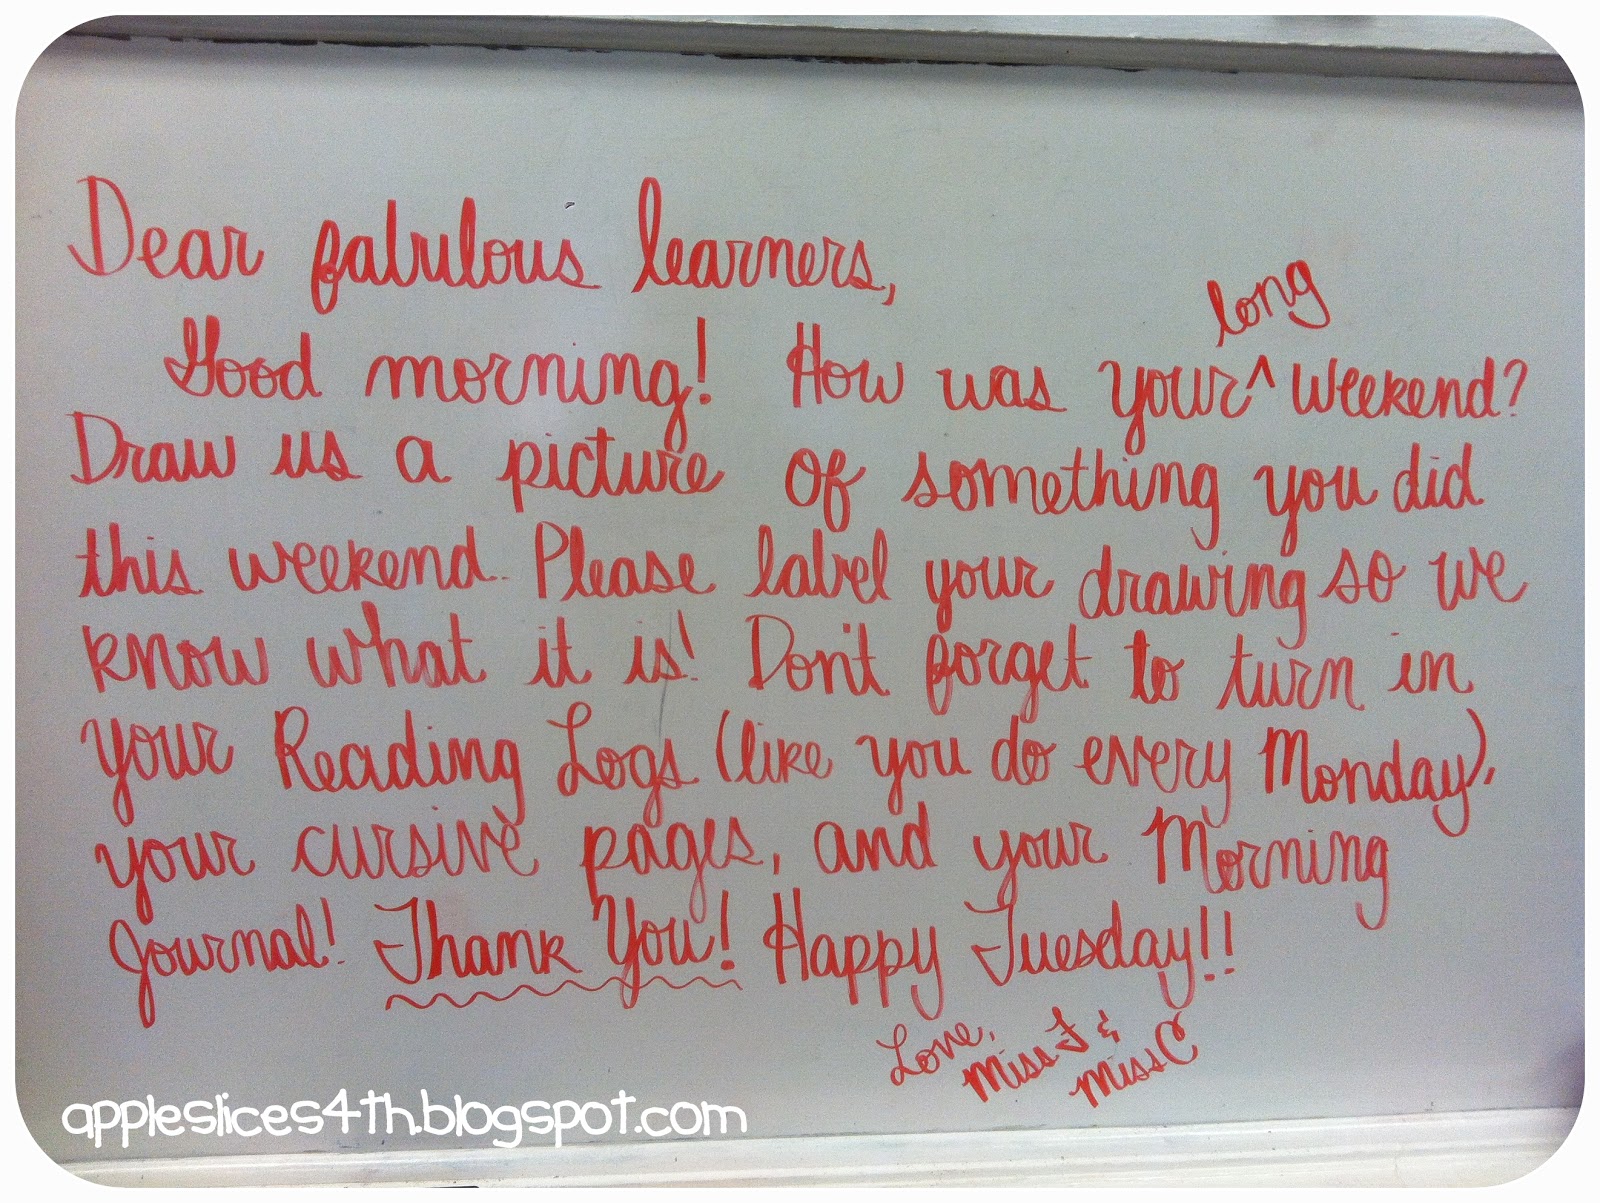 Dear fabulous learners,
Good morning! How was your ^ long weekend?
Draw us a picture of something you did
this weekend. Please label your drawing so we
know what it is! Don't forget to turn in
your Reading Logs (like you do every Monday),
your cursive pages, and your Morning
Journal! Thank You! Happy Tuesday!!
Love,
Miss F &
Miss C
appleslices4th.blogspot.com